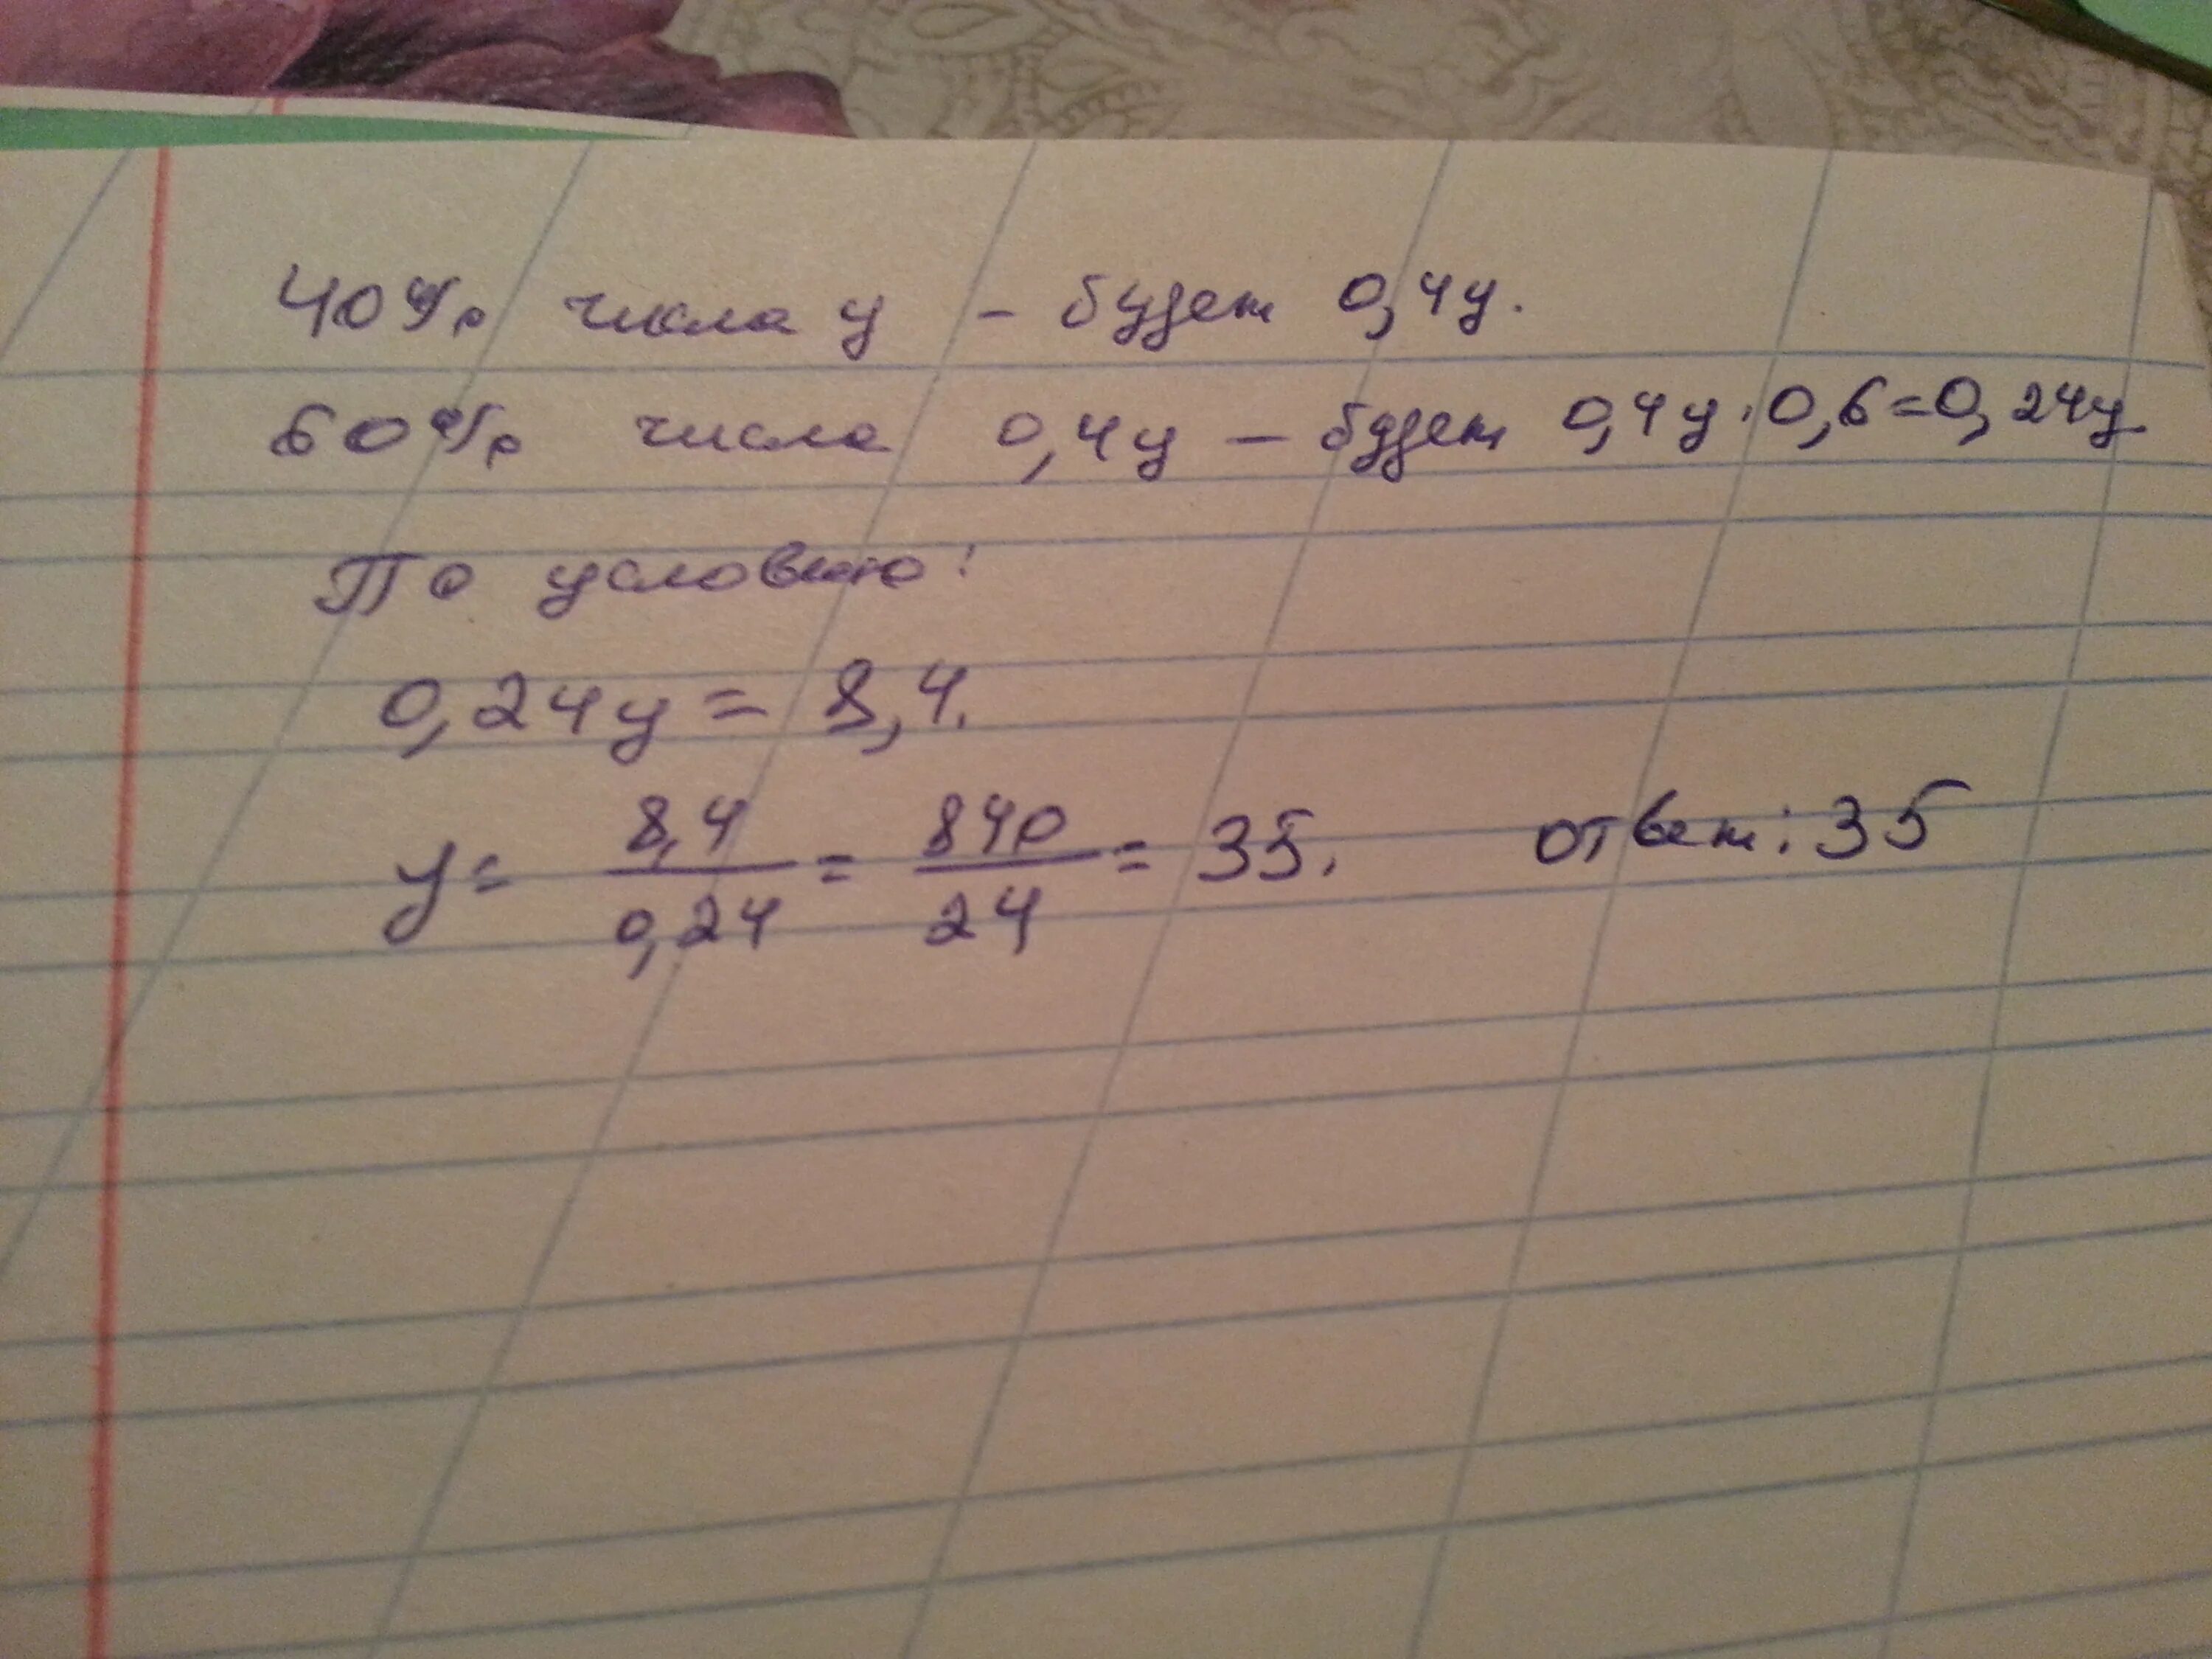 40% числа y - будет 0,4y.
60% числа 0,4y - будет 0,4y · 0,6=0,24y
По условию:
0,24y = 8,4.
y = 8,4/0,24 = 840/24 = 35. ответ: 35